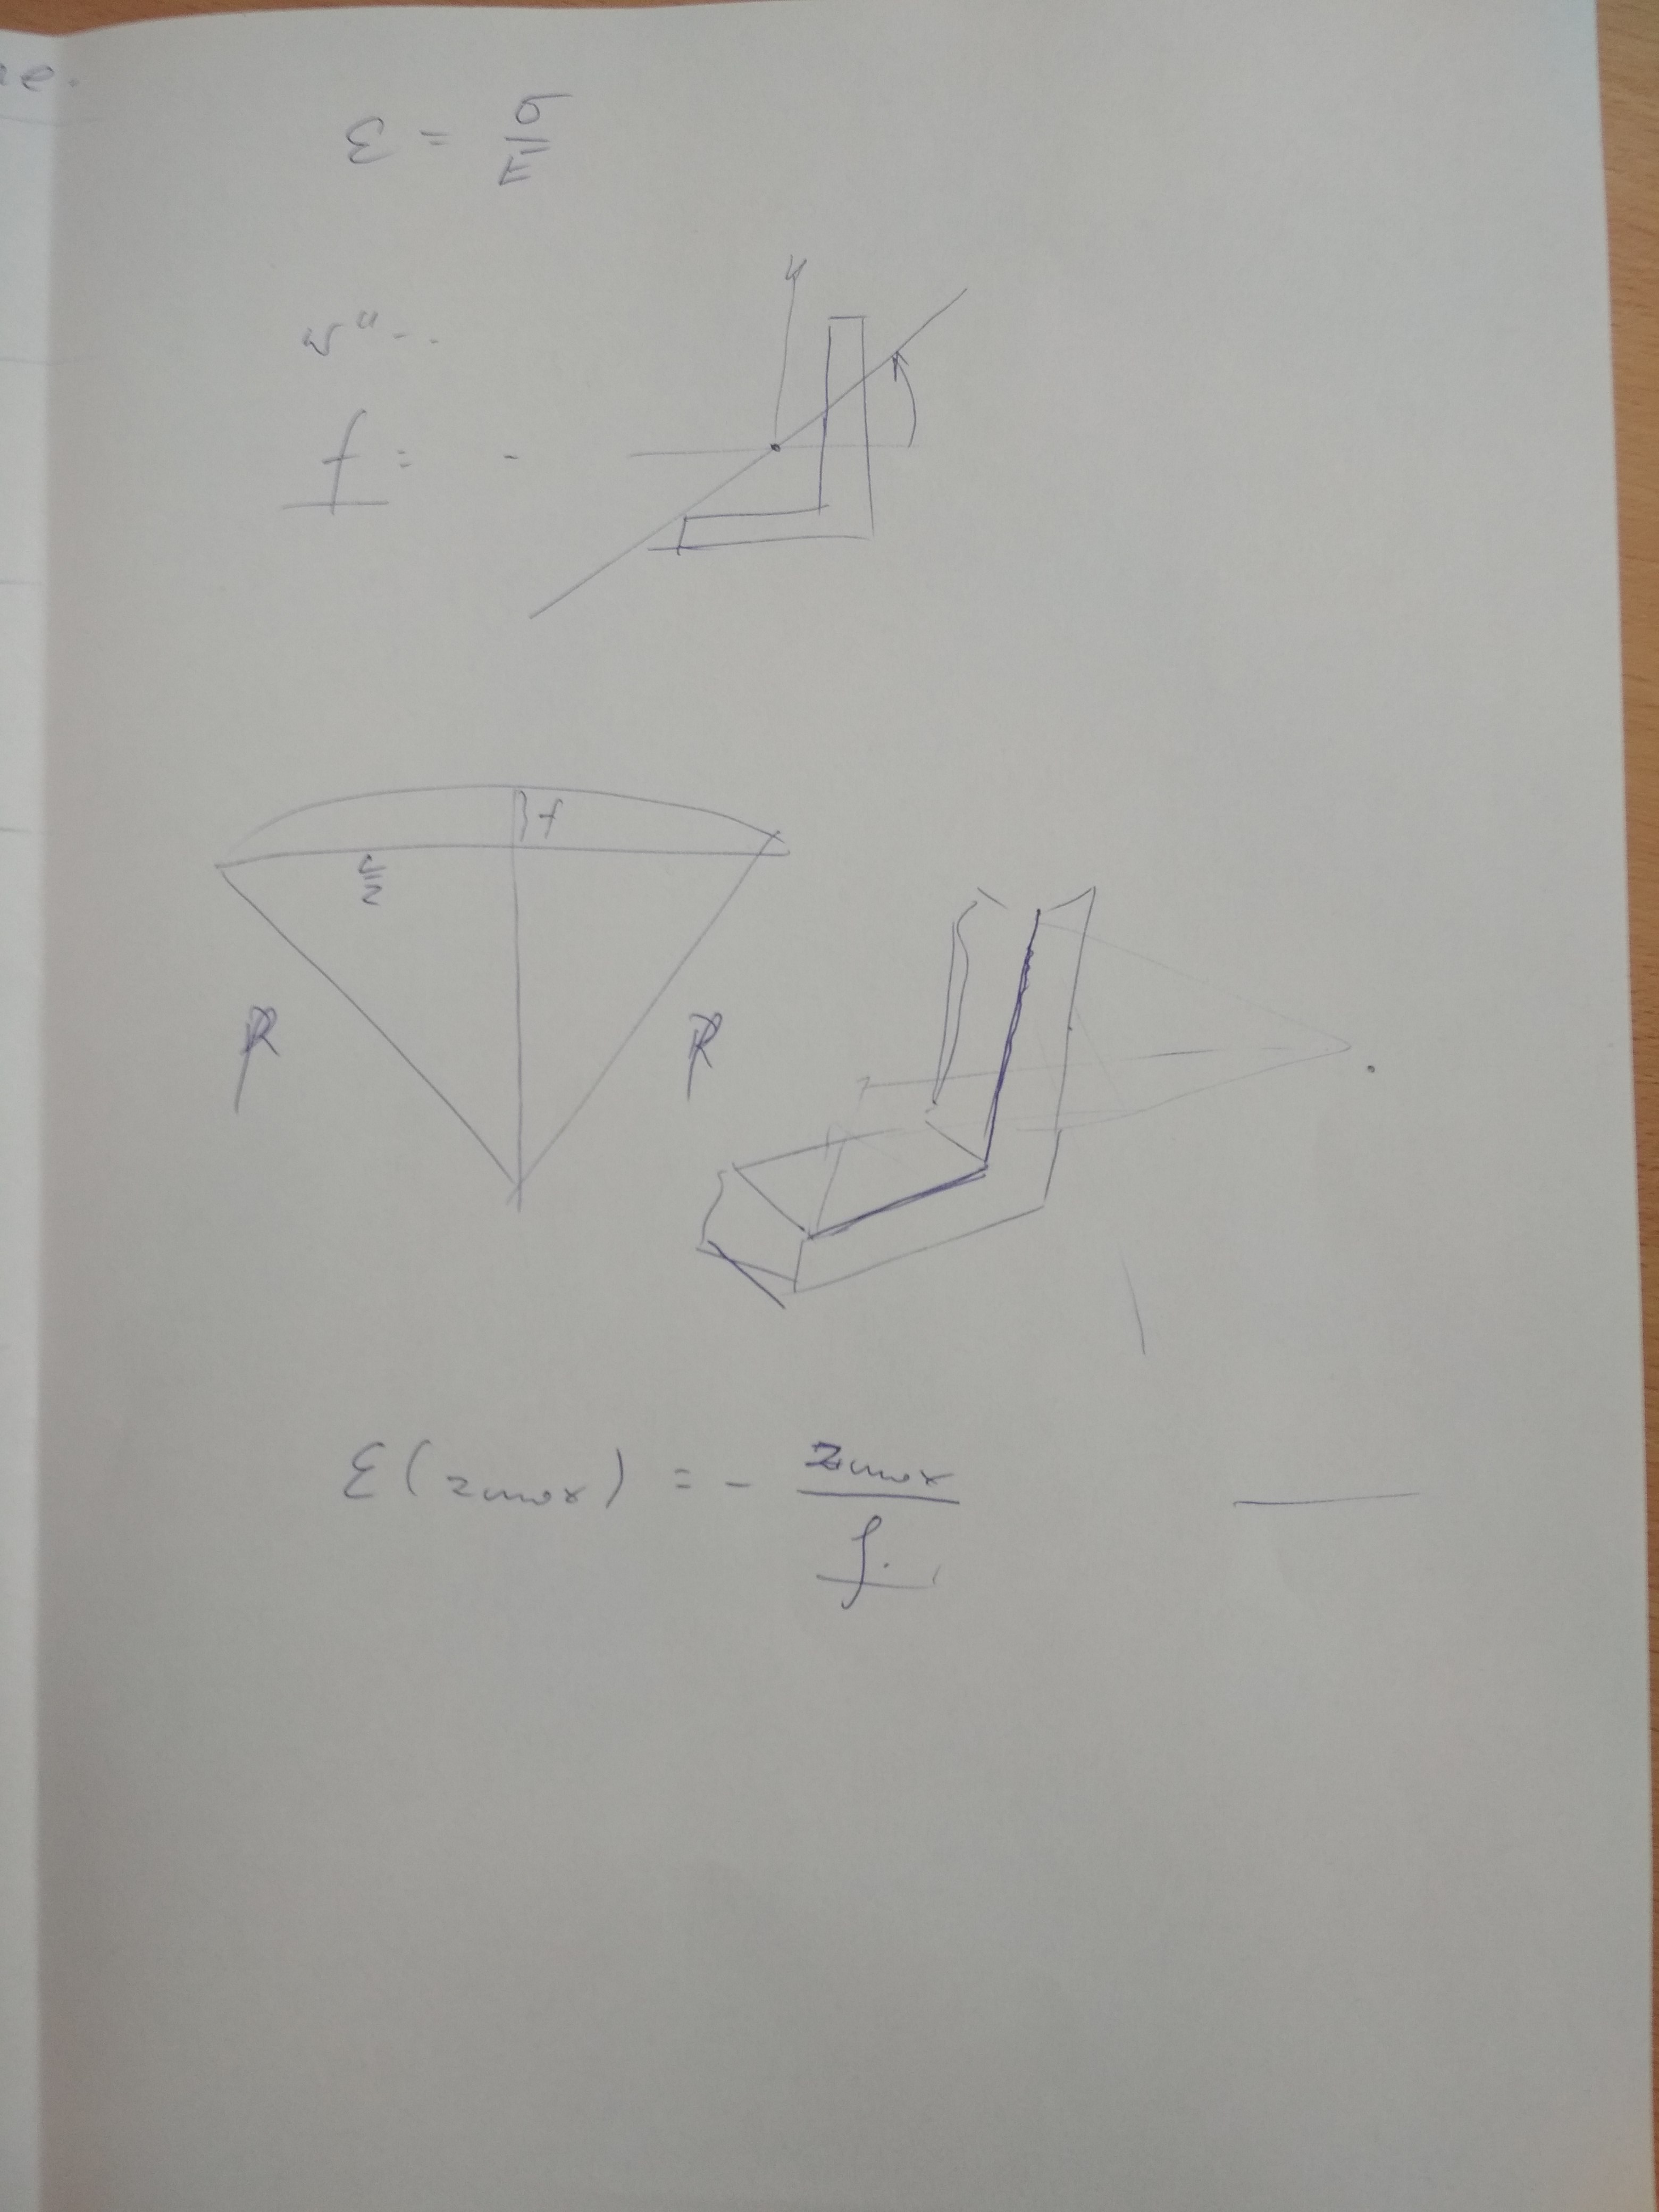 ε = σ/E
w" - -
f = -
y
} f
L/2
R R
ε(zmax) = - zmax/ρ